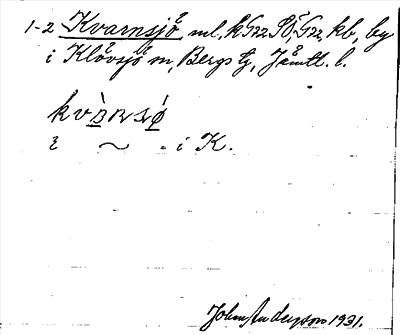 1-2 Kvarnsjö, ml, kG22 SO, G22, kb, by
i Klövsjö m, Bergs tg, Jämtl. l.
kvànsǿ
i ~ . i K.
John Anderson 1931.